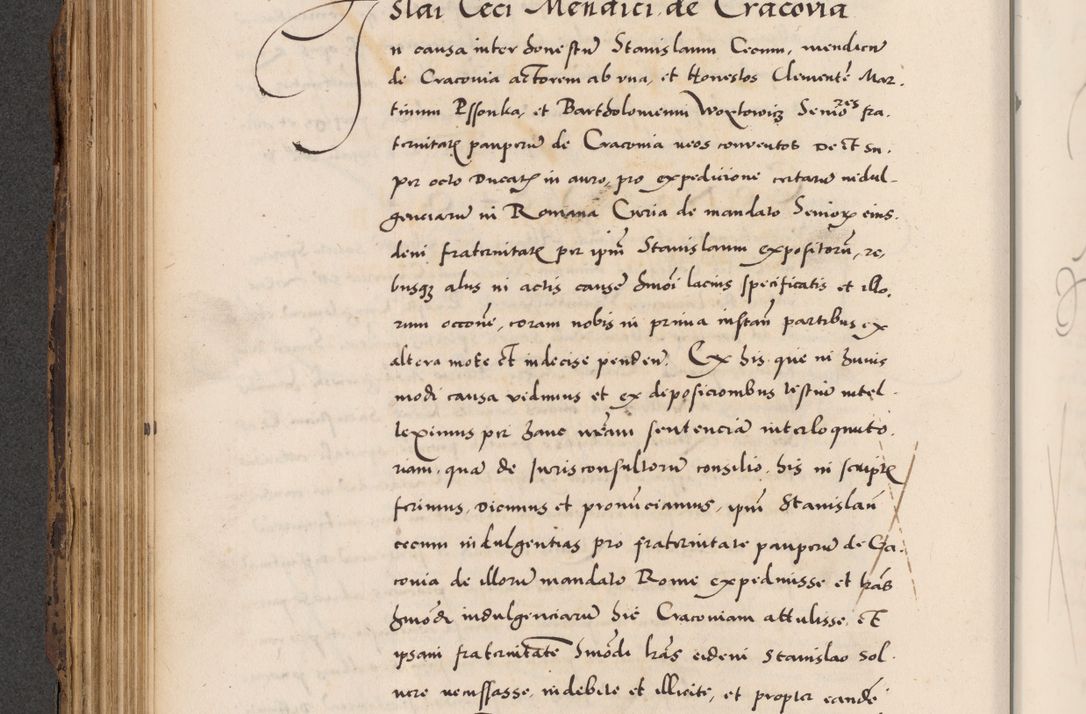 slai Ceci Mendici de Cracovia
In causa inter honestũ Stanislaum Cecum, mendicũ
de Cracovia actorem ab vna, et Honestos Clementẽ Mar-
tinum Pssonka, et Bartholomeum Woytowicz Seniores fra-
ternitatꝭ pauperũ de Cracovia reos conventos de et su-
per octo Ducatꝭ in auro, pro expedicione certarũ indul-
genciarũ in Romana Curia de mandato Seniorꝝ eius-
dem fraternitatꝭ per ipm̃ Stanislaum expositorũ, re-
busqꝫ aliis in actis cause hmõi lacius specificatis et illo-
rum occõne, coram nobis in prima instan̄ partibus ex
altera mote et indecise penden̄. Ex his que in huius-
modi causa vidimus et ex deposicionibus testiũ intel-
leximus per hanc nr̃am sentenciã interloquuto-
riam, quã de Iurisconsultorũ consilio, his in scriptꝭ
ferimus, Dicimus et pronũciamus, ipm̃ Stanislaũ
cecum indulgentias pro fraternitate pauperũ de Cra-
covia de illorũ mandato Rome expedivisse et lr̃as
hmõdi indulgenciarũ hic Cracoviam attulisse, et
ipsam fraternitatẽ hmõdi lr̃as eidem Stanislao sol-
vere recusasse, indebite et illicite, et propter eandẽ